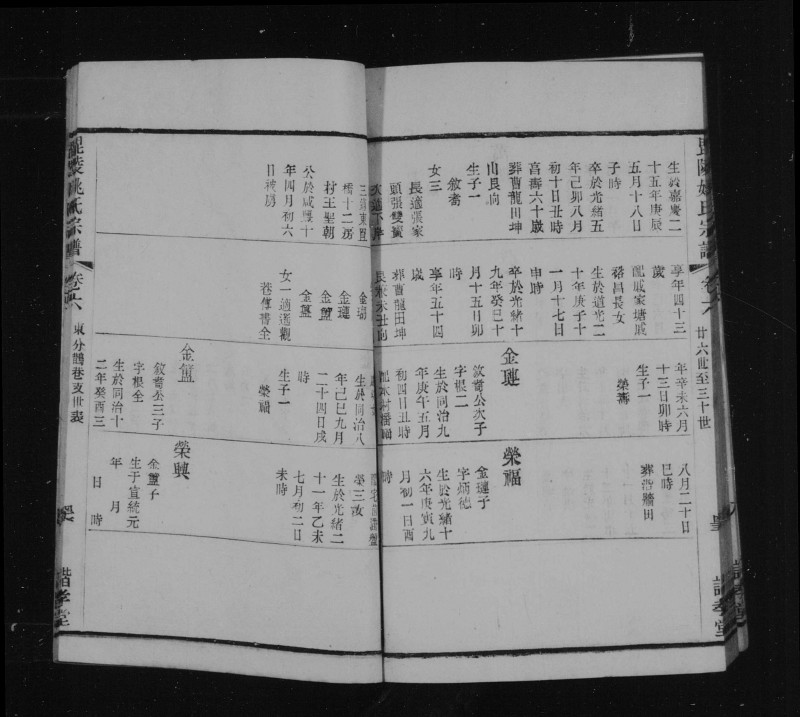 氏宗譜
卷六
廿六世至三十世
生於嘉慶二
十五年庚辰
五月十八日
子時
卒於光緒五
年己卯八月
初十日丑時
享壽六十歲
葬曹龍田坤
山艮向
生子一
敘喬
女三
長適張家
頭張雙
次適下岸
橋十二房
村王聖朝
公於咸豐十
年四月初六
日被房
享年四十三
歲
配戚家塘戚
裕昌長女
生於道光二
十年庚子十
一月十七日
申時
卒於光緒十
九年癸巳十
月十五日卯
時
享年五十四
歲
葬曹龍田坤
艮兼未丑向
金
金璉
金
金
女一適遙觀
巷傅書全
年辛未六月
十三日卯時
生子一
榮壽
金璉
敘喬公次子
字根二
生於同治九
年庚午五月
初四日丑時
生於同治八
年己巳九月
二十四日戌
時
生子一
榮福
金
敘喬公三子
字根全
生於同治十
二年癸酉三
八月二十日
巳時
葬
田
榮福
金璉子
字炳德
生於光緒十
六年庚寅九
月初一日酉
時
榮三女
生於光緒二
十一年乙未
七月初二日
未時
榮興
金
子
生于宣統元
年 月
日 時
毘陵姚氏宗譜
卷六
東分鵲巷支世表
諧孝堂